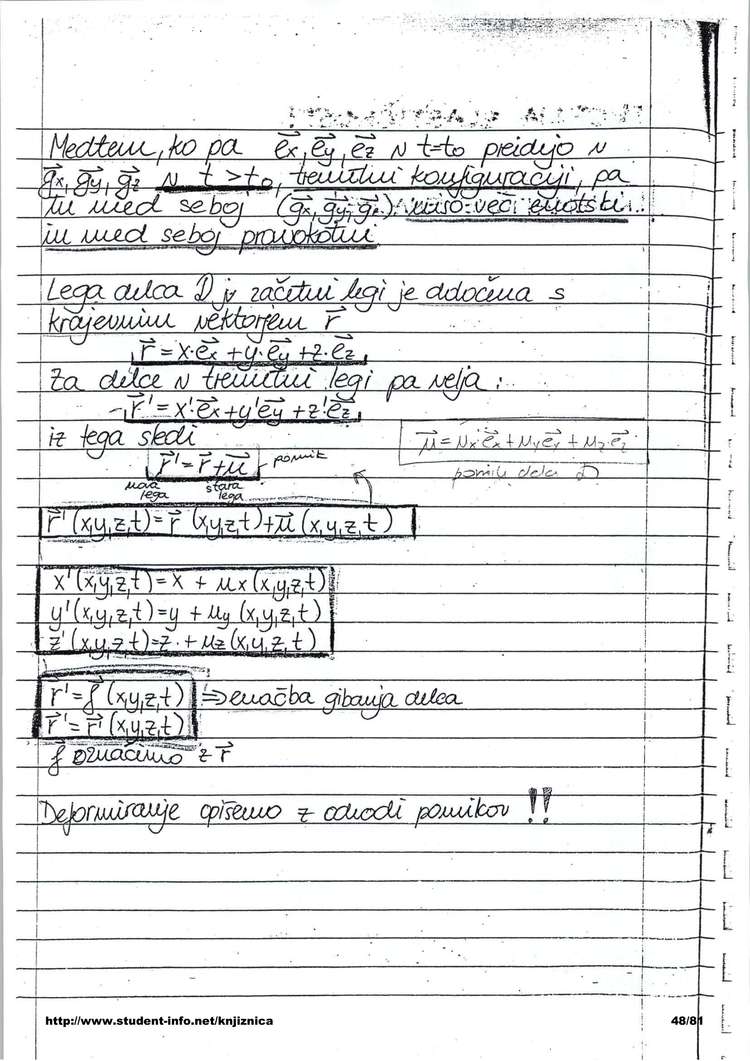 Medtem, ko pa e⃗x, e⃗y, e⃗z v t=t₀ preidejo v
g⃗x, g⃗y, g⃗z v t > t₀, trenutni konfiguraciji, pa
tu med seboj (g⃗x, g⃗y, g⃗z) niso več enotski
in med seboj pravokotni
Lega delca D v začetni legi je določena s
krajevnim vektorjem r⃗
r⃗ = x·e⃗x + y·e⃗y + z·e⃗z
Za delce v trenutni legi pa velja:
r⃗' = x'e⃗x + y'e⃗y + z'e⃗z
iz tega sledi
u⃗ = ux·e⃗x + uy·e⃗y + uz·e⃗z
r⃗' = r⃗ + u⃗ pomik
pomik delca D
nova lega
stara lega
r⃗'(x,y,z,t) = r⃗(x,y,z,t) + u⃗(x,y,z,t)
x'(x,y,z,t) = x + ux(x,y,z,t)
y'(x,y,z,t) = y + uy(x,y,z,t)
z'(x,y,z,t) = z + uz(x,y,z,t)
r⃗' = f⃗(x,y,z,t) ⇒ enačba gibanja delca
r⃗' = r⃗'(x,y,z,t)
f⃗ označimo z r⃗
Deformiranje opišemo z odvodi pomikov !!
http://www.student-info.net/knjiznica
48/81